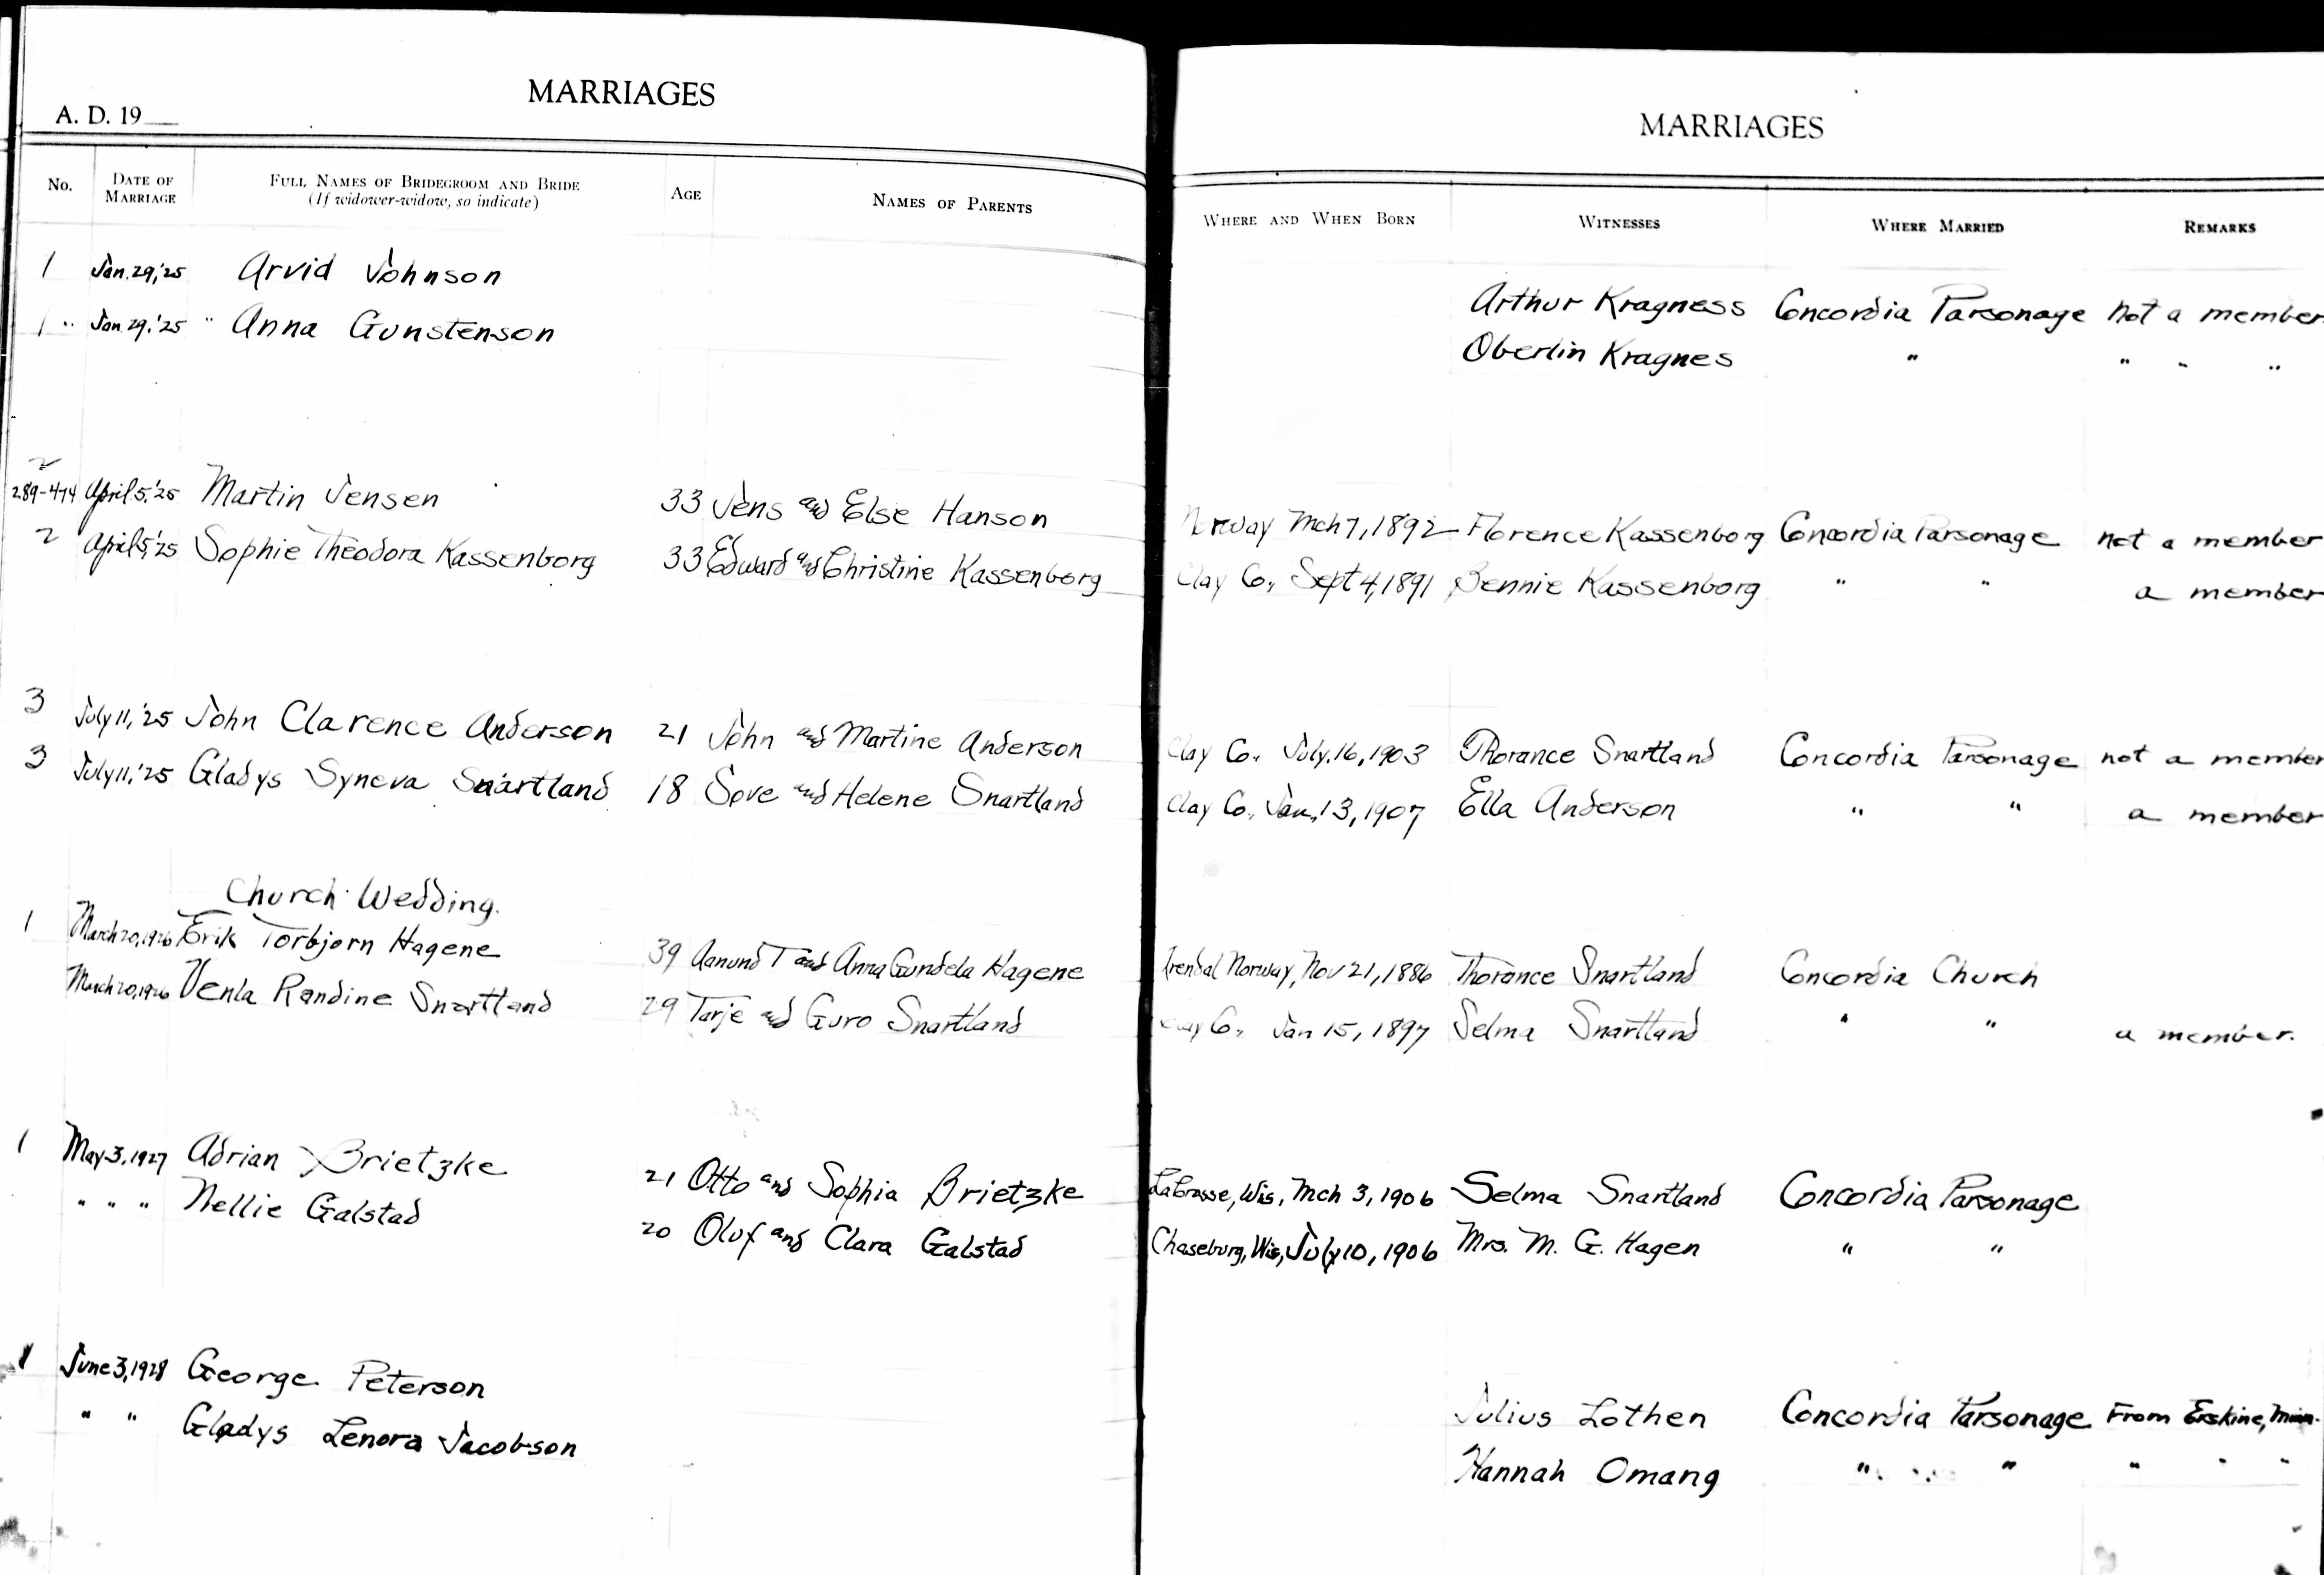 MARRIAGES
A. D. 19
No. DATE OF MARRIAGE FULL NAMES OF BRIDEGROOM AND BRIDE (If widower-widow, so indicate) AGE NAMES OF PARENTS
1 Jan. 29,'25 Arvid Johnson
1 " Jan. 29,'25 " Anna Gunstenson
2
289-474 April 5,'25 Martin Jensen 33 Jens and Else Hanson
2 April 5,'25 Sophie Theodora Kassenborg 33 Edward and Christine Kassenborg
3 July 11,'25 John Clarence Anderson 21 John and Martine Anderson
3 July 11,'25 Gladys Syneva Snartland 18 Sove and Helene Snartland
Church Wedding.
1 March 20, 1926 Erik Torbjorn Hagene 39 Aanund T and Anna Gundela Hagene
March 20, 1926 Venla Randine Snartland 29 Tarje and Guro Snartland
1 May 3, 1927 Adrian Brietzke 21 Otto and Sophia Brietzke
" " " Nellie Galstad 20 Oluf and Clara Galstad
1 June 3, 1928 George Peterson
" " Gladys Lenora Jacobson
MARRIAGES
WHERE AND WHEN BORN WITNESSES WHERE MARRIED REMARKS
Arthur Kragness Concordia Parsonage not a member
Oberlin Kragnes " " " "
Norway Mch 7, 1892 Florence Kassenborg Concordia Parsonage not a member
Clay Co., Sept 4, 1891 Bennie Kassenborg " " a member
Clay Co. July 16, 1903 Thorance Snartland Concordia Parsonage not a member
Clay Co., Jan. 13, 1907 Ella Anderson " " a member
Arendal Norway, Nov 21, 1886 Thorance Snartland Concordia Church
Clay Co., Jan 15, 1897 Selma Snartland " " a member.
LaCrosse, Wis, Mch 3, 1906 Selma Snartland Concordia Parsonage
Chaseburg, Wis, July 10, 1906 Mrs. M. G. Hagen " "
Julius Lothen Concordia Parsonage From Erskine, Minn.
Hannah Omang " " " " "